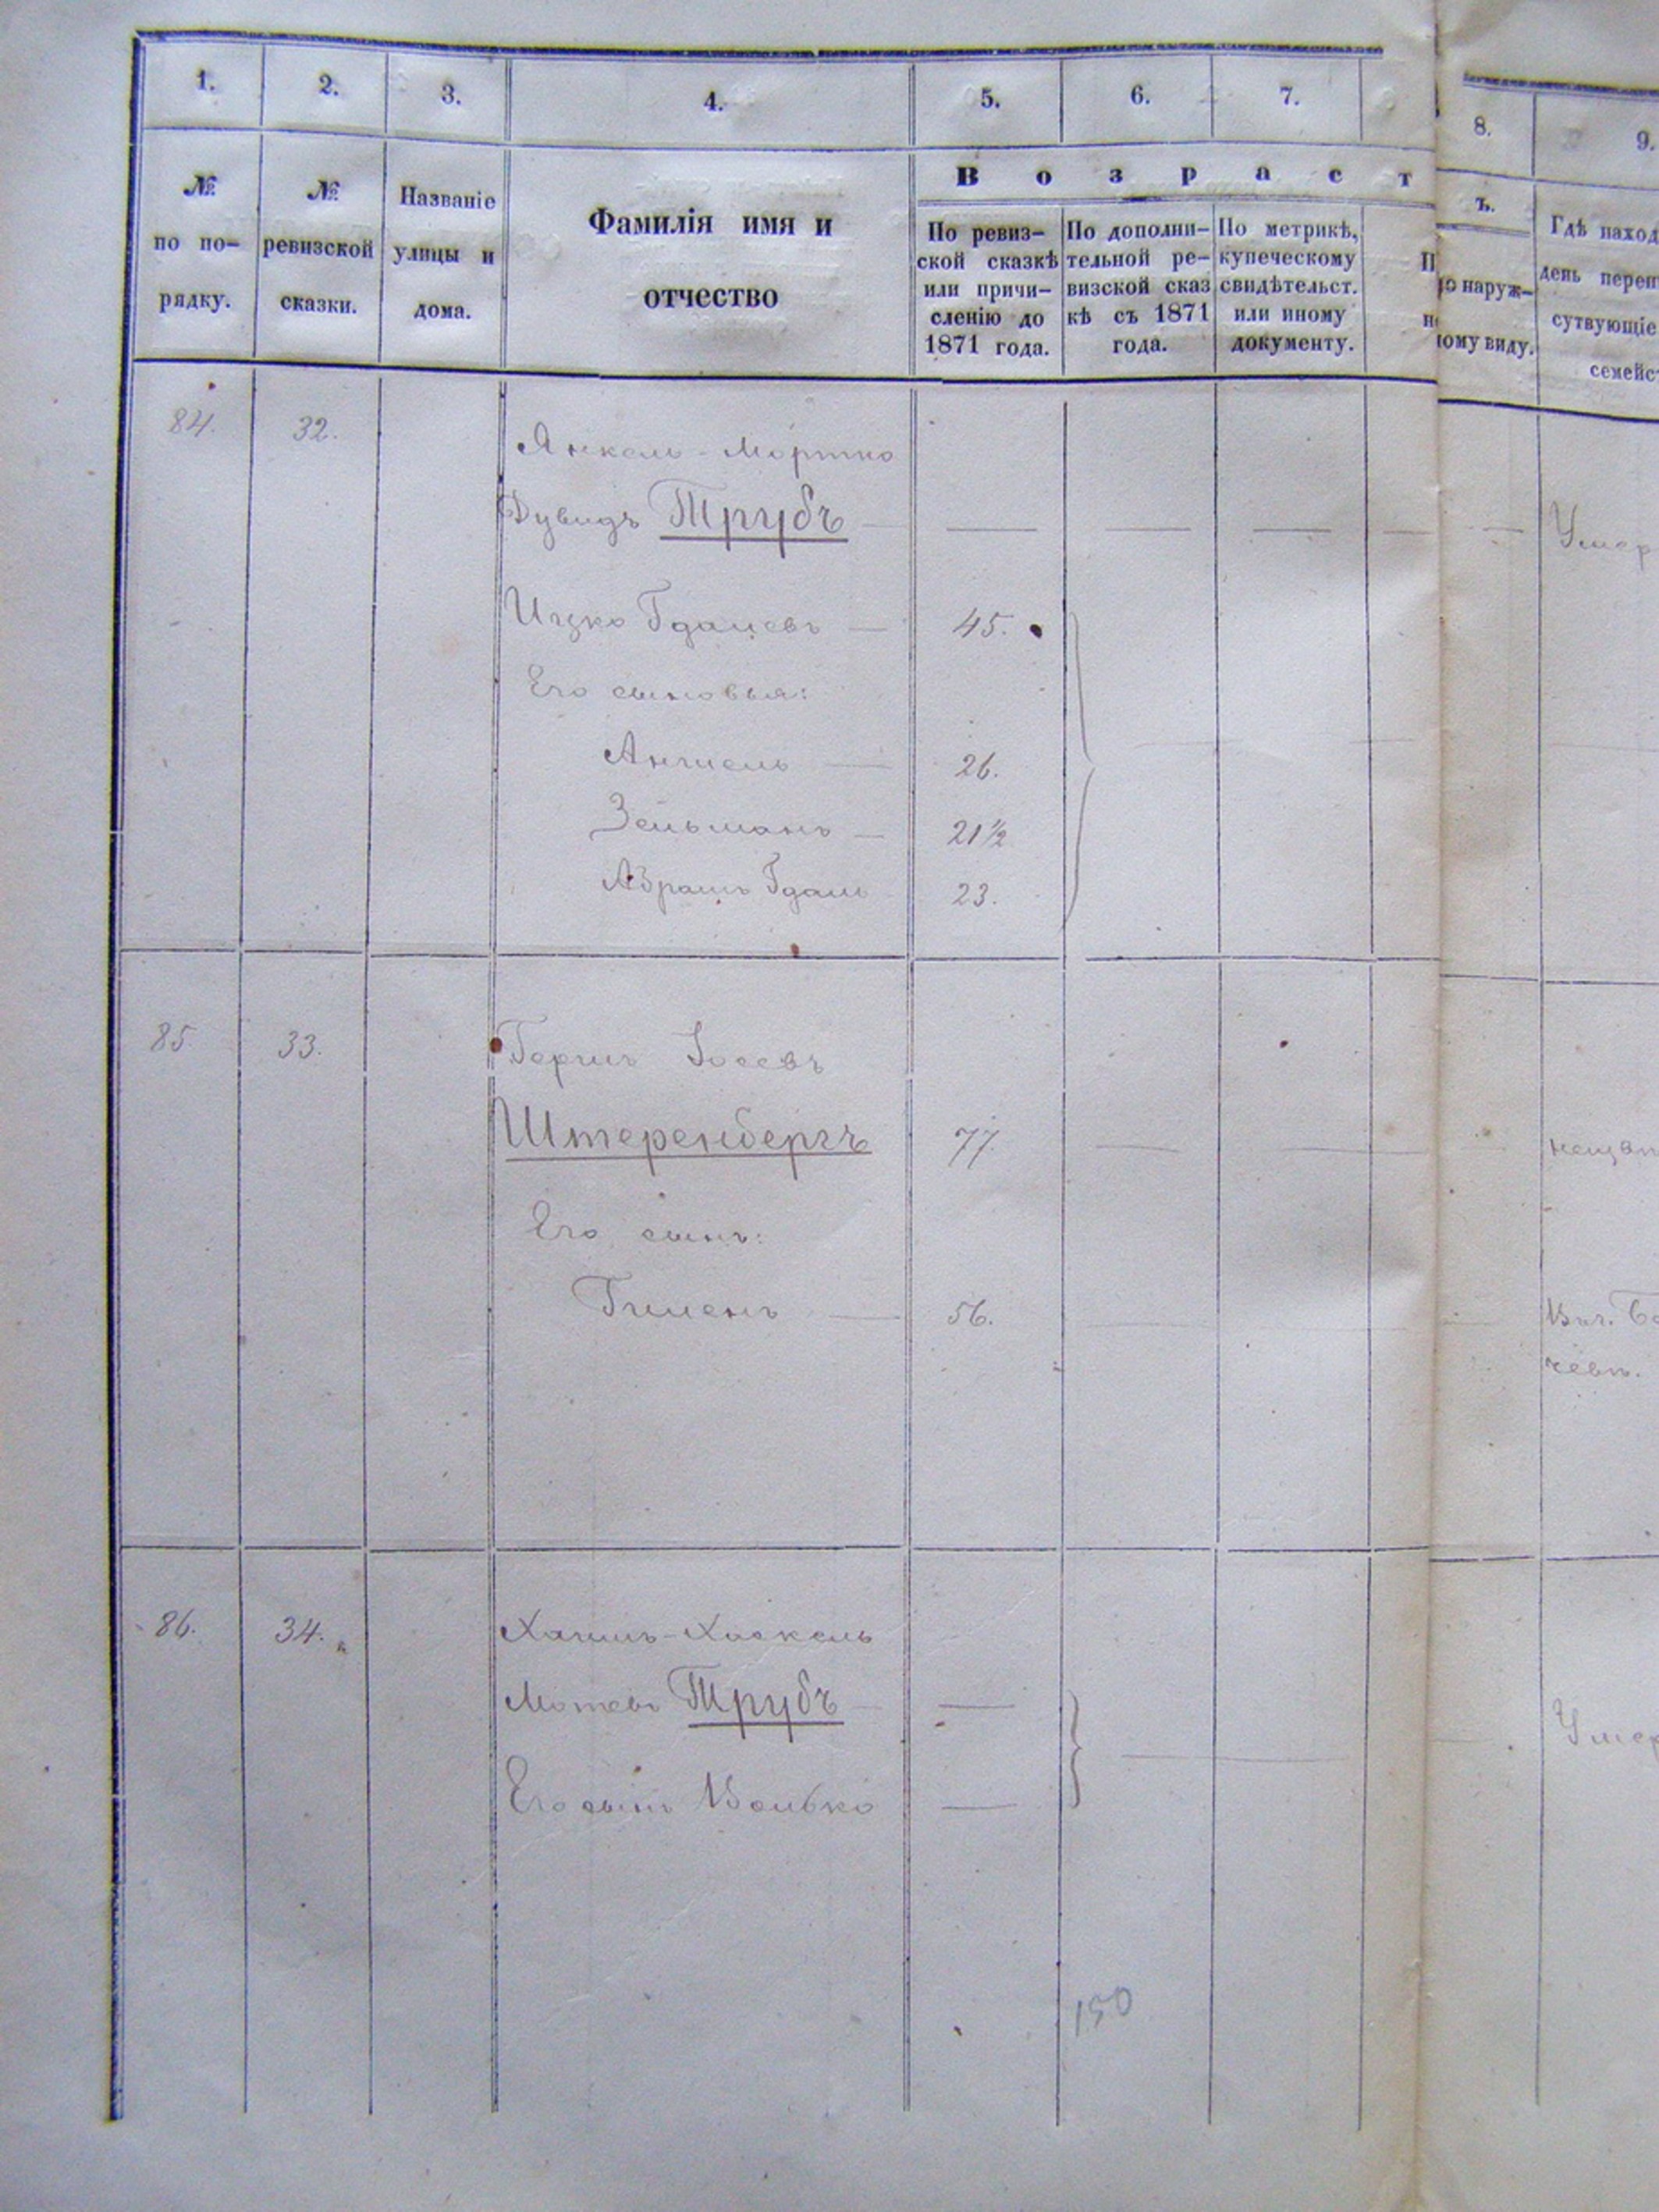 1. 2. 3. 4. 5. 6. 7. 8. 9.
№ по по-рядку.
№ ревизской сказки.
Названіе улицы и дома.
Фамилія имя и отчество
Возраст ъ.
По ревиз-
ской сказкѣ
или причи-
сленію до
1871 года.
По дополни-
тельной ре-
визской сказ
кѣ съ 1871
года.
По метрикѣ,
купеческому
свидѣтельст.
или иному
документу.
по наруж-
ному виду.
Гдѣ наход
день переп
сутвующіе
семейс
84. 32. Янкель-Мортко
Дувидъ Трубъ — — — — — Умер
Ицко Гдалевъ — 45.
Его сыновья:
Анчель — 26.
Зельманъ — 21½
Абрамъ Гдаль 23.
85 33. Гершъ Іосевъ
Штеренбергъ 77. — —
Его сынъ:
— 56.
86. 34. Хаимъ-Хаскель
Мотевъ Трубъ — — Умер
Его сынъ Волько —
150